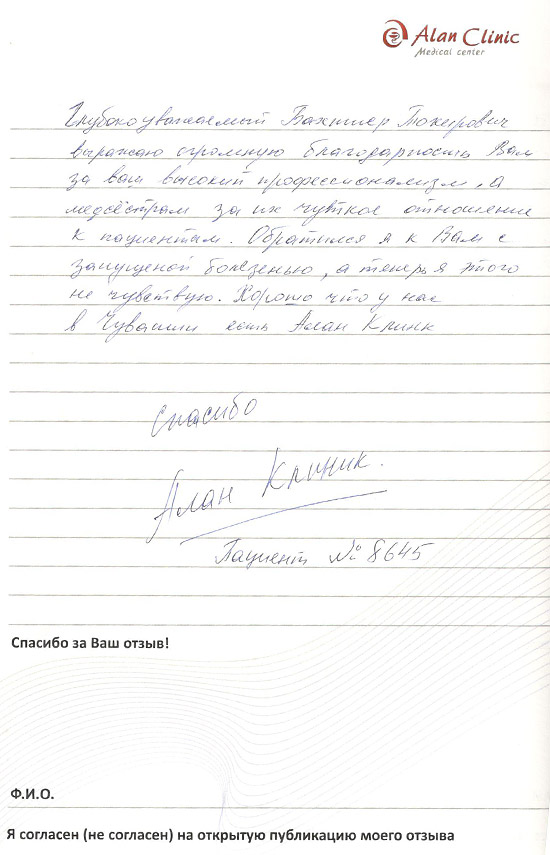 Alan Clinic
Medical center
Глубокоуважаемый Бахтиер
выражаю огромную благодарность Вам
за ваш высокий профессионализм, а
медсёстрам за их чуткое отношение
к пациентам. Обратился я к Вам с
запущеной болезенью, а теперь я этого
не чувствую. Хорошо что у нас
в Чувашии есть Алан Клинк
Спасибо
Алан Клиник.
Пациент № 8645
Спасибо за Ваш отзыв!
Ф.И.О.
Я согласен (не согласен) на открытую публикацию моего отзыва